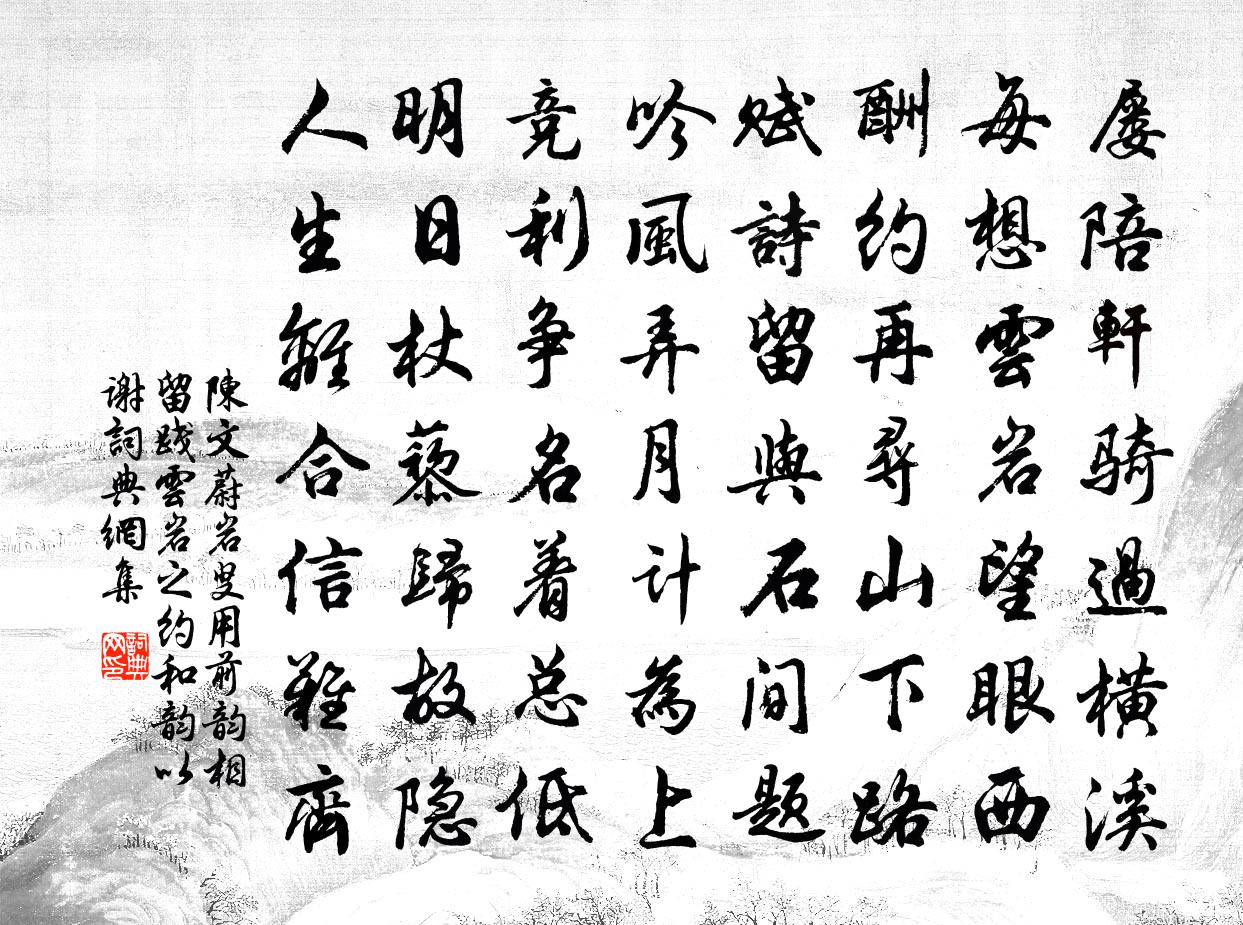 屡陪軒骑過橫溪
每想雲岩望眼西
酬約再尋山下路
賦詩留與石间題
吟風弄月计為上
竞利争名着总低
明日杖藜歸故隐
人生離合信難齊
陳文蔚岩叟用前韵相
留踐雲岩之約和韵以
谢詞典網集
詞典
网印